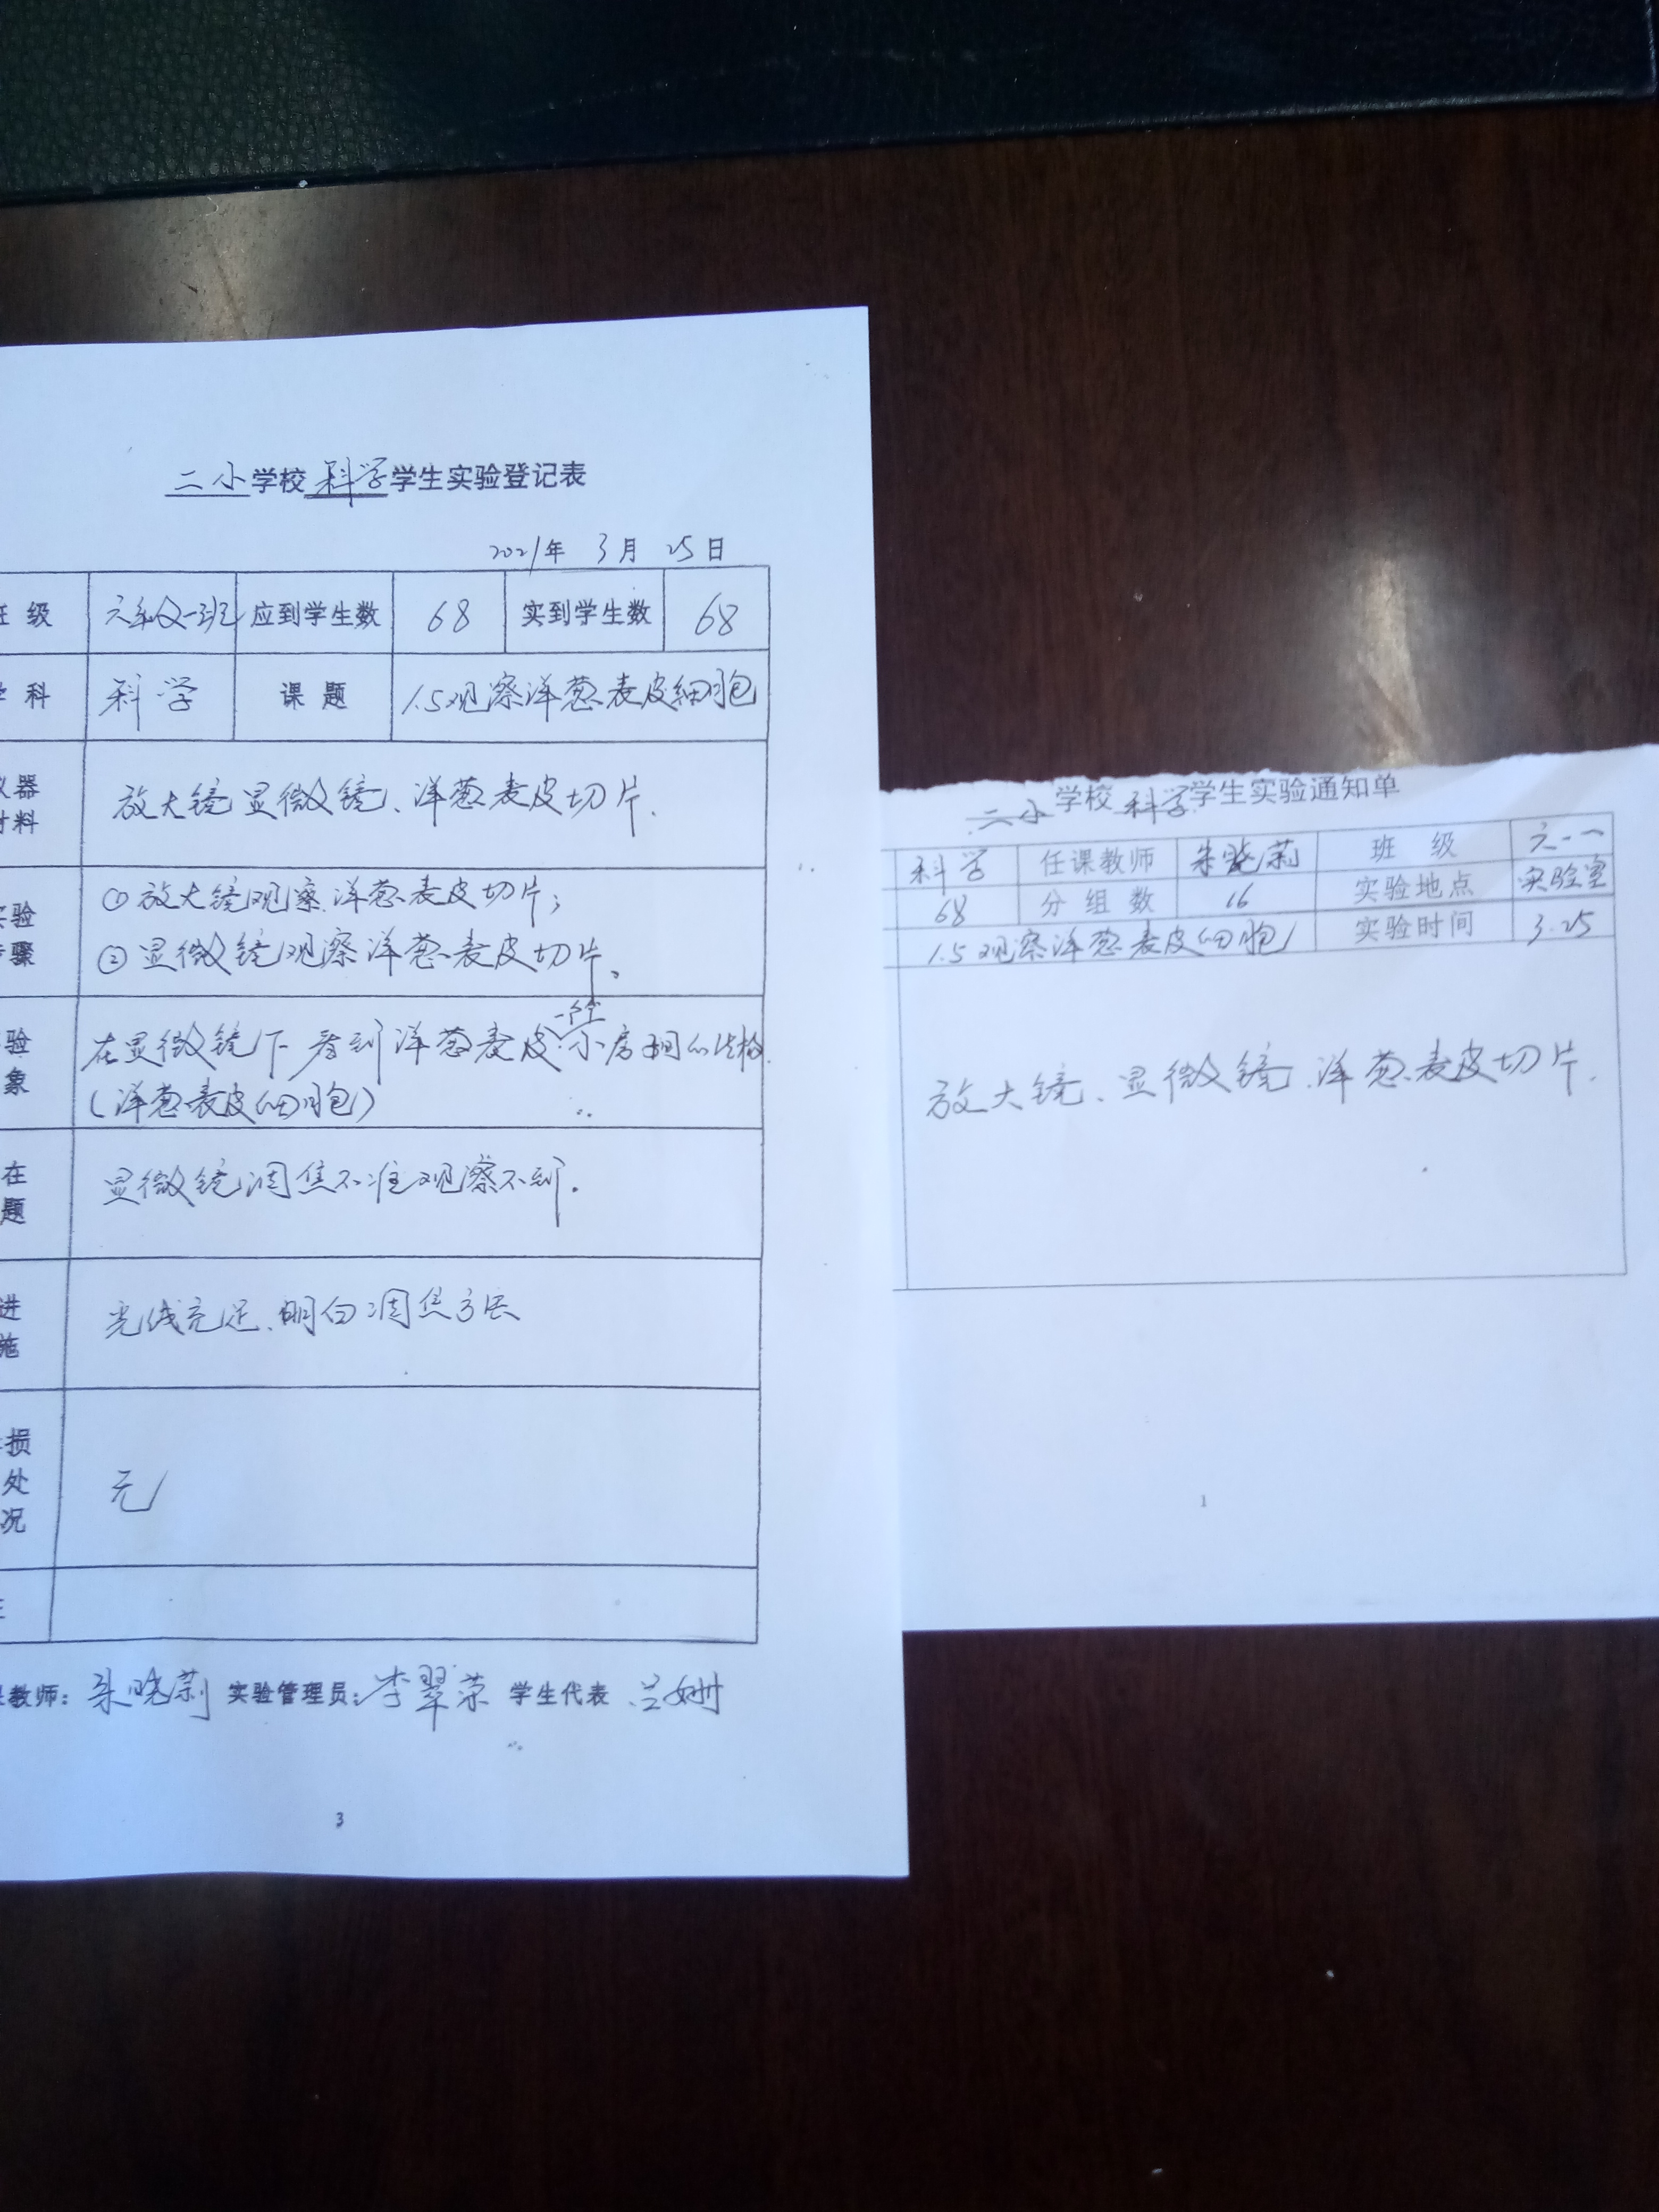 二小学校科学学生实验登记表
2021年 3月 25日
级 六年级一班 应到学生数 68 实到学生数 68
科 科学 课题 1.5观察洋葱表皮细胞
器
料
放大镜、显微镜、洋葱表皮切片.
验
骤
①放大镜观察洋葱表皮切片;
②显微镜观察洋葱表皮切片。
验
象
在显微镜下看到洋葱表皮一个个小房间似结构
(洋葱表皮细胞)
在
题
显微镜调焦不准观察不到.
进
施
光线充足、明白调焦方法
损
处
况
无
教师: 朱晓莉 实验管理员: 李翠荣 学生代表 吕姗
3
二小学校科学学生实验通知单
科学 任课教师 朱晓莉 班级 六.一
68 分组数 16 实验地点 实验室
1.5观察洋葱表皮细胞 实验时间 3.25
放大镜、显微镜.洋葱表皮切片.
1